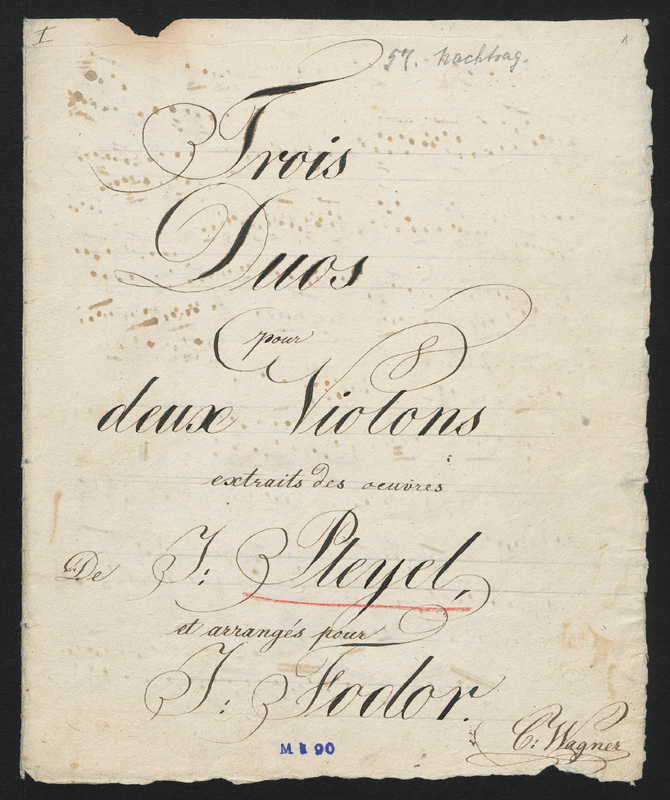 1
57. Nachtrag.
1
Trois
Duos
pour
deux Violons
extraits des oeuvres
De J: Pleyel,
et arrangés pour
J: Fodor.
C: Wagner
M 90